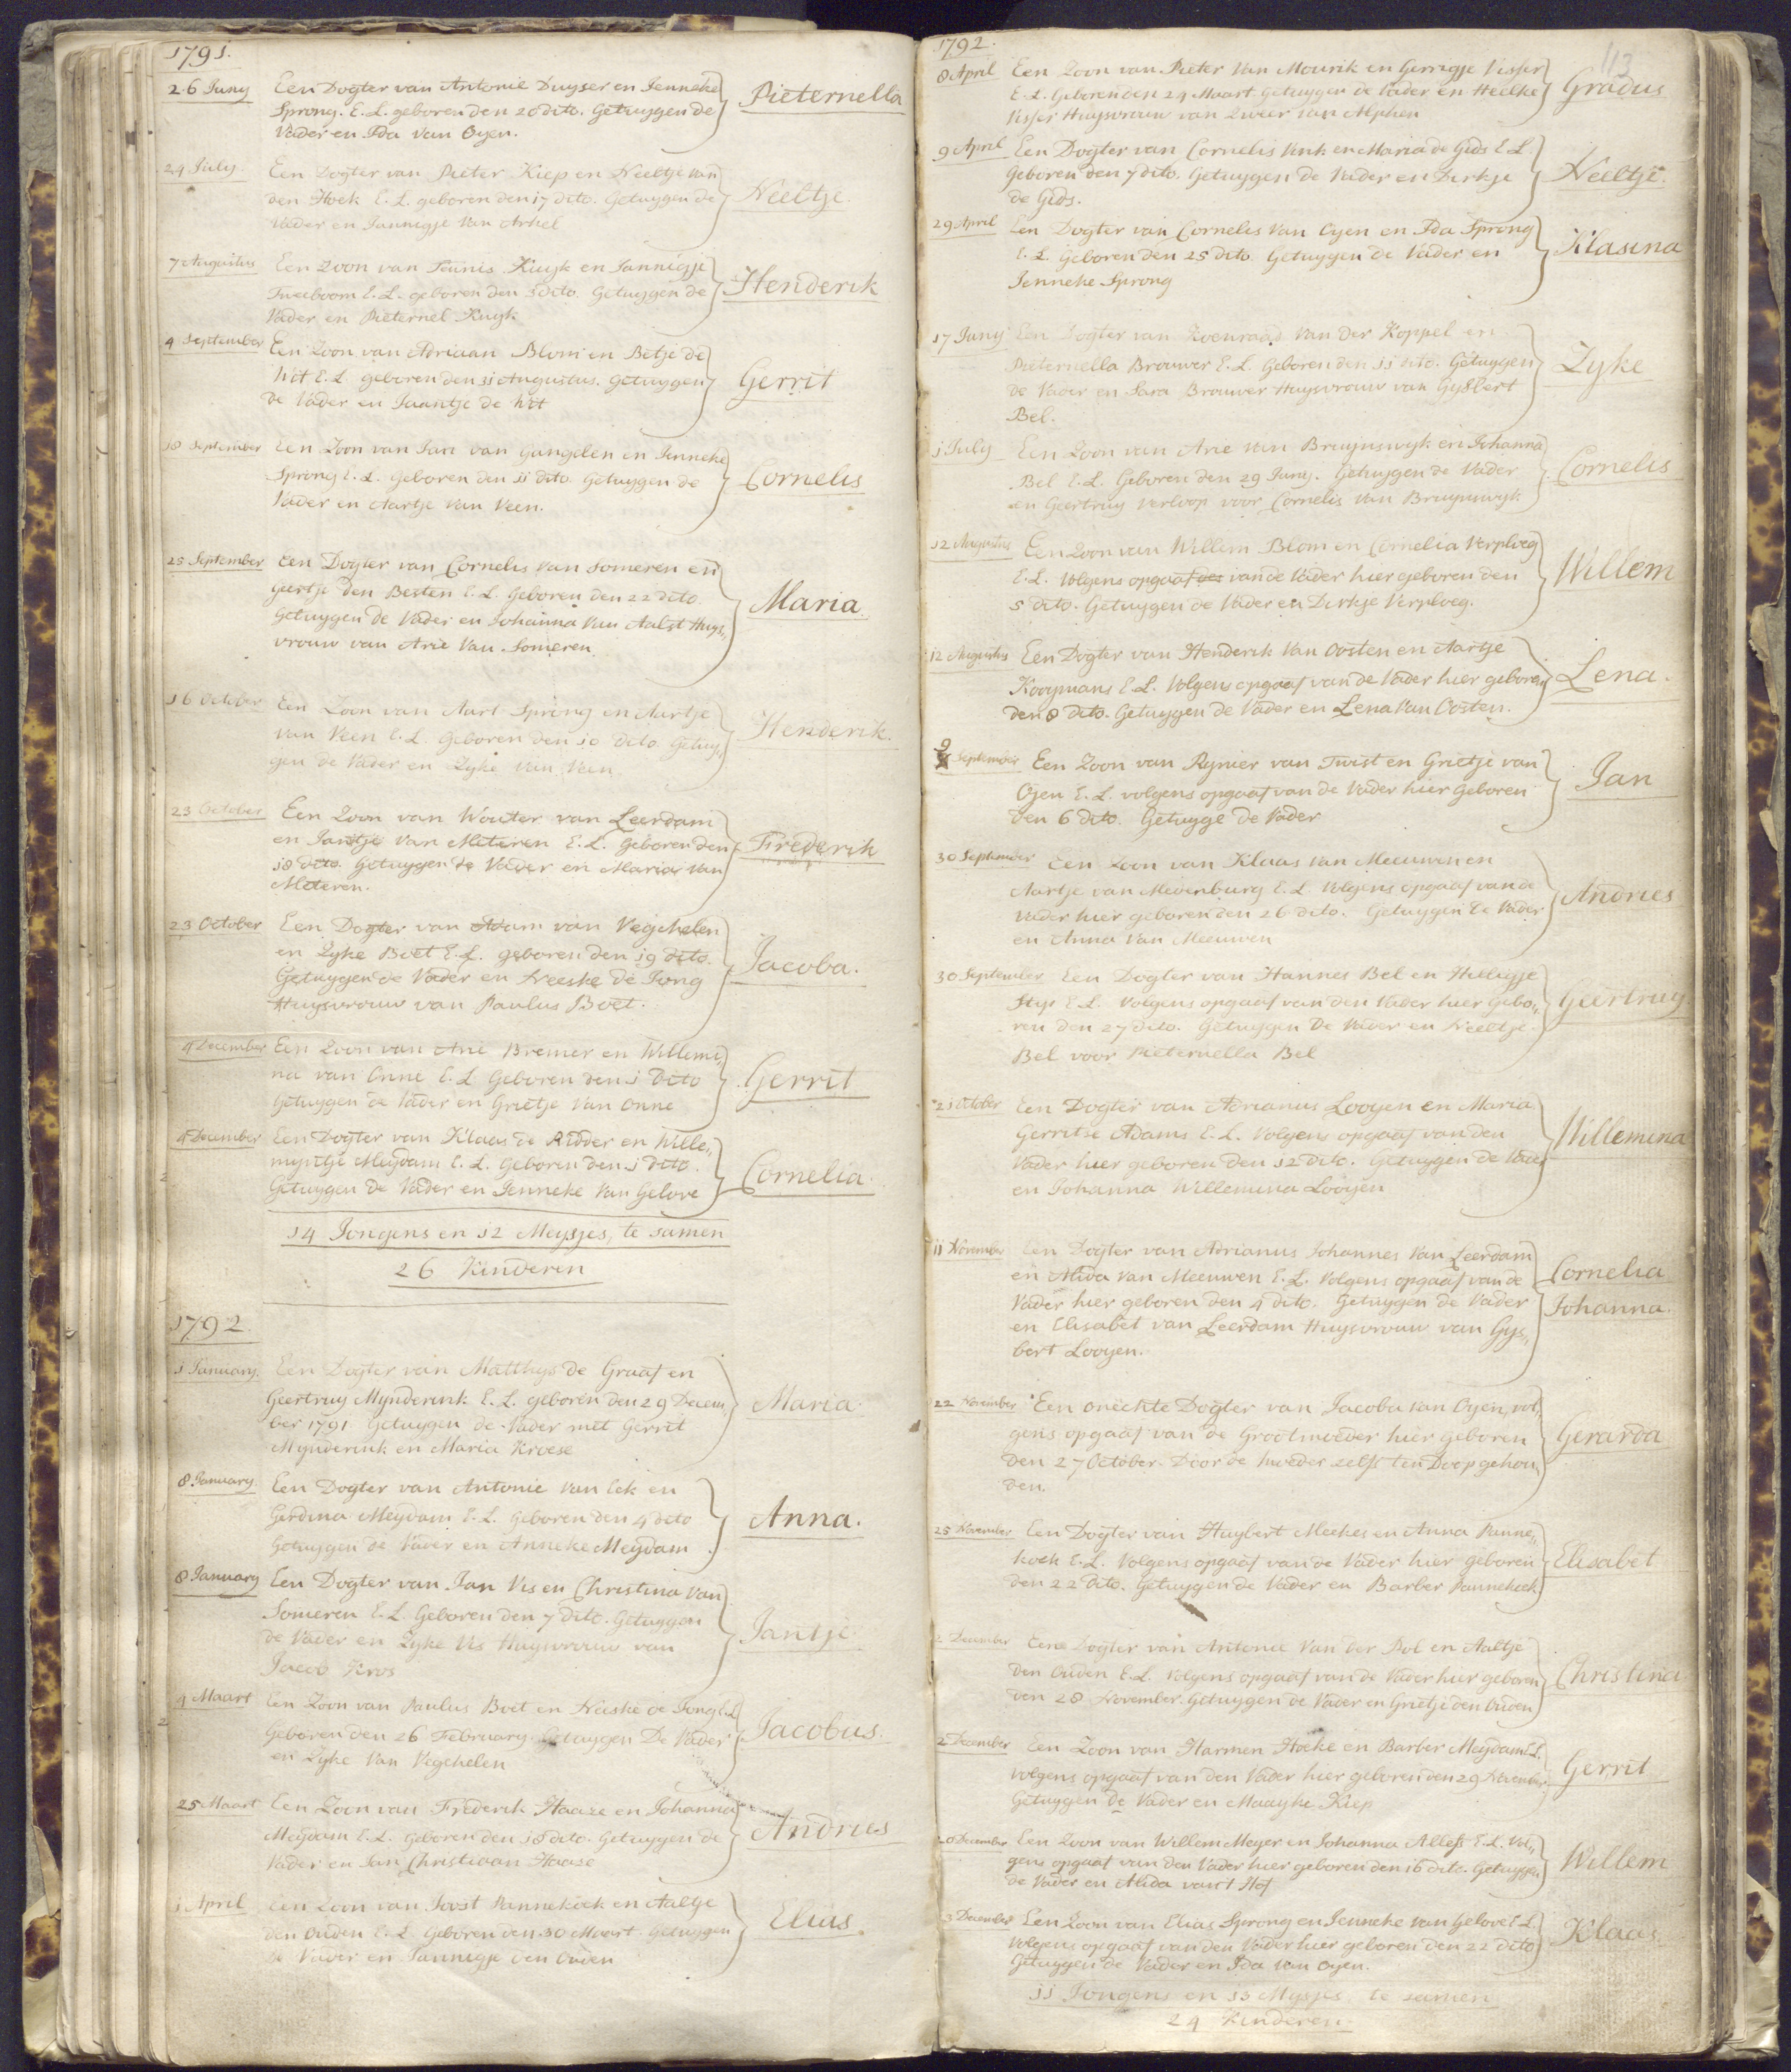 1791.
26 Juny Een Dogter van Antonie Duyser en Jenneke
Sprong. E. L. geboren den 20 dito. Getuygen de Pieternella
Vader en Ida van Oyen.
24 July. Een Dogter van Pieter Kiep en Neeltje van
den Hoek E. L. geboren den 17 dito. Getuygen de Neeltje.
Vader en Jannigje van Arkel
7 Augustus Een Zoon van Teunis Kuyk en Jannigje
Tweeboom E. L. geboren den 3 dito. Getuygen de Henderik
Vader en Pieternel Kuyk
4 September Een Zoon van Adriaan Blom en Betje de
Wit E. L. geboren den 31 Augustus. Getuygen Gerrit
de Vader en Jaantje de Wit
18 September Een Zoon van Jan van Gangelen en Jenneke
Sprong E. L. Geboren den 11 dito Getuygen de Cornelis
Vader en Aartje van Veen.
25 September Een Dogter van Cornelis van Someren en
Geertje den Besten E. L. Geboren den 22 dito.
Getuygen de Vader en Johanna van Aalst Huys„ Maria.
vrouw van Arie van Someren
16 October Een Zoon van Aart Sprong en Aartje
van Veen E. L. Geboren den 10 dito. Getuy„ Henderik.
gen de Vader en Zyke van Veen
23 October Een Zoon van Wouter van Leerdam
en Jantje van Meteren E. L. Geboren den Frederik
18 dito. Getuygen de Vader en Maria van
Meteren.
23 October Een Dogter van Adam van Vegchelen
en Zyke Boet E. L. geboren den 19 dito.
Getuygen de Vader en Neeske de Jong Jacoba.
Huysvrouw van Paulus Boet.
4 December Een Zoon van Arie Bremer en Willemi„
na van Onne E. L Geboren den 1 dito Gerrit
Getuygen de Vader en Grietje van Onne
4 December Een Dogter van Klaas de Ridder en Wille„
myntje Meydam E. L. Geboren den 1 dito.
Getuygen de Vader en Jenneke van Gelove Cornelia.
14 Jongens en 12 Meysjes, te samen
26 Kinderen
1792.
1 January. Een Dogter van Matthys de Graaf en
Geertruy Mynderink E. L. geboren den 29 Decem„ Maria
ber 1791 Getuygen de Vader met Gerrit
Mynderink en Maria Kroese
8 January. Een Dogter van Antonie van Eck en
Gerdina Meydam E. L. Geboren den 4 dito Anna.
Getuygen de Vader en Anneke Meydam
8 January Een Dogter van Jan Vis en Christina van
Someren E. L. Geboren den 7 dito. Getuygen
de Vader en Zyke Vis Huysvrouw van Jantje
Jacob Kros
4 Maart Een Zoon van Paulus Boet en Neeske de Jong E. L
Geboren den 26 February. Getuygen De Vader Jacobus.
en Zyke van Vegchelen
25 Maart Een Zoon van Frederik Haaze en Johanna
Meydam E. L. Geboren den 18 dito. Getuygen de Andries
Vader en Jan Christiaan Haaze
1 April Een Zoon van Joost Pannekoek en Aaltje
den Ouden E. L Geboren den 30 Maart. Getuygen Elias.
de Vader en Jannigje den Ouden
1792.
113
8 April Een Zoon van Pieter van Mourik en Gerrigje Visser
E. L. Geboren den 24 Maart Getuygen de Vader en Heelke Gradus
Visser Huysvrouw van Zweer van Alphen
9 April Een Dogter van Cornelis Vink en Maria de Gids E L.
Geboren den 7 dito. Getuygen de Vader en Dirkje Neeltje.
de Gids.
29 April Een Dogter van Cornelis van Oyen en Ida Sprong
E. L. Geboren den 25 dito Getuygen de Vader en Klasina
Jenneke Sprong
17 Juny Een Dogter van Koenraad van der Koppel en
Pieternella Brouwer E. L. Geboren den 11 dito. Getuygen Zyke
de Vader en Sara Brouwer Huysvrouw van Gysbert
Bel.
1 July Een Zoon van Arie van Bruynswyk en Johanna
Bel E. L. Geboren den 29 Juny. Getuygen de Vader Cornelis
en Geertruy Verloop voor Cornelis van Bruynswyk
12 Augustus Een Zoon van Willem Blom en Cornelia Verploeg
E. L. Volgens opgaaf van de Vader hier geboren den Willem
5 dito. Getuygen de Vader en Dirkje Verploeg.
12 Augustus Een Dogter van Henderik van Oosten en Aartje
Kooymans E. L. Volgens opgaaf van de Vader hier geboren Lena.
den 8 dito. Getuygen de Vader en Lena van Oosten.
9 September Een Zoon van Rynier van Twist en Grietje van
Oyen E. L. volgens opgaaf van de Vader hier Geboren Jan
den 6 dito. Getuyge de Vader
30 September Een Zoon van Klaas van Meeuwen en
Aartje van Mevenburg E. L. Volgens opgaaf van de
Vader hier geboren den 26 dito. Getuygen de Vader Andries
en Anna van Meeuwen
30 September Een Dogter van Hannes Bel en Hilligje
Styp E L. Volgens opgaaf van den Vader hier gebo„ Geertruy
ren den 27 dito. Getuygen De Vader en Neeltje
Bel voor Pieternella Bel
21 October Een Dogter van Adrianus Looyen en Maria
Gerritse Adams E. L. Volgens opgaaf van den Willemina
Vader hier geboren den 12 dito. Getuygen de Vader
en Johanna Willemina Looyen
11 November Een Dogter van Adrianus Johannes van Leerdam
en Alida van Meeuwen E. L. Volgens opgaaf van de Cornelia
Vader hier geboren den 4 dito. Getuygen de Vader Johanna.
en Elisabet van Leerdam Huysvrouw van Gys„
bert Looyen.
22 November Een onechte Dogter van Jacoba van Oyen, vol„
gens opgaaf van de Grootmoeder hier geboren Gerarda
den 27 October. Door de moeder zelfs ten Doop gehou„
den.
25 November Een Dogter van Huybert Meekes en Anna Panne„
koek E. L. Volgens opgaaf van de Vader hier geboren Elisabet
den 22 dito. Getuygen de Vader en Barber Pannekoek
2 December Een Dogter van Antonie van der Pol en Aaltje
den Ouden E. L. Volgens opgaaf van de Vader hier geboren Christina
den 28 November. Getuygen de Vader en Grietje den Ouden
2 December Een Zoon van Harmen Hoeke en Barber Meydam E. L.
volgens opgaaf van den Vader hier geboren den 29 November Gerrit
Getuygen de Vader en Maayke Kiep
20 December Een Zoon van Willem Meyer en Johanna Allefs E. L. Vol„
gens opgaaf van den Vader hier geboren den 16 dito. Getuygen Willem
de Vader en Alida van't Hof
3 December Een Zoon van Elias Sprong en Jenneke van Gelove E L.
Volgens opgaaf van den Vader hier geboren den 22 dito Klaas
Getuygen de Vader en Ida van Oyen.
11 Jongens en 13 Mysjes, te samen
24 Kinderen